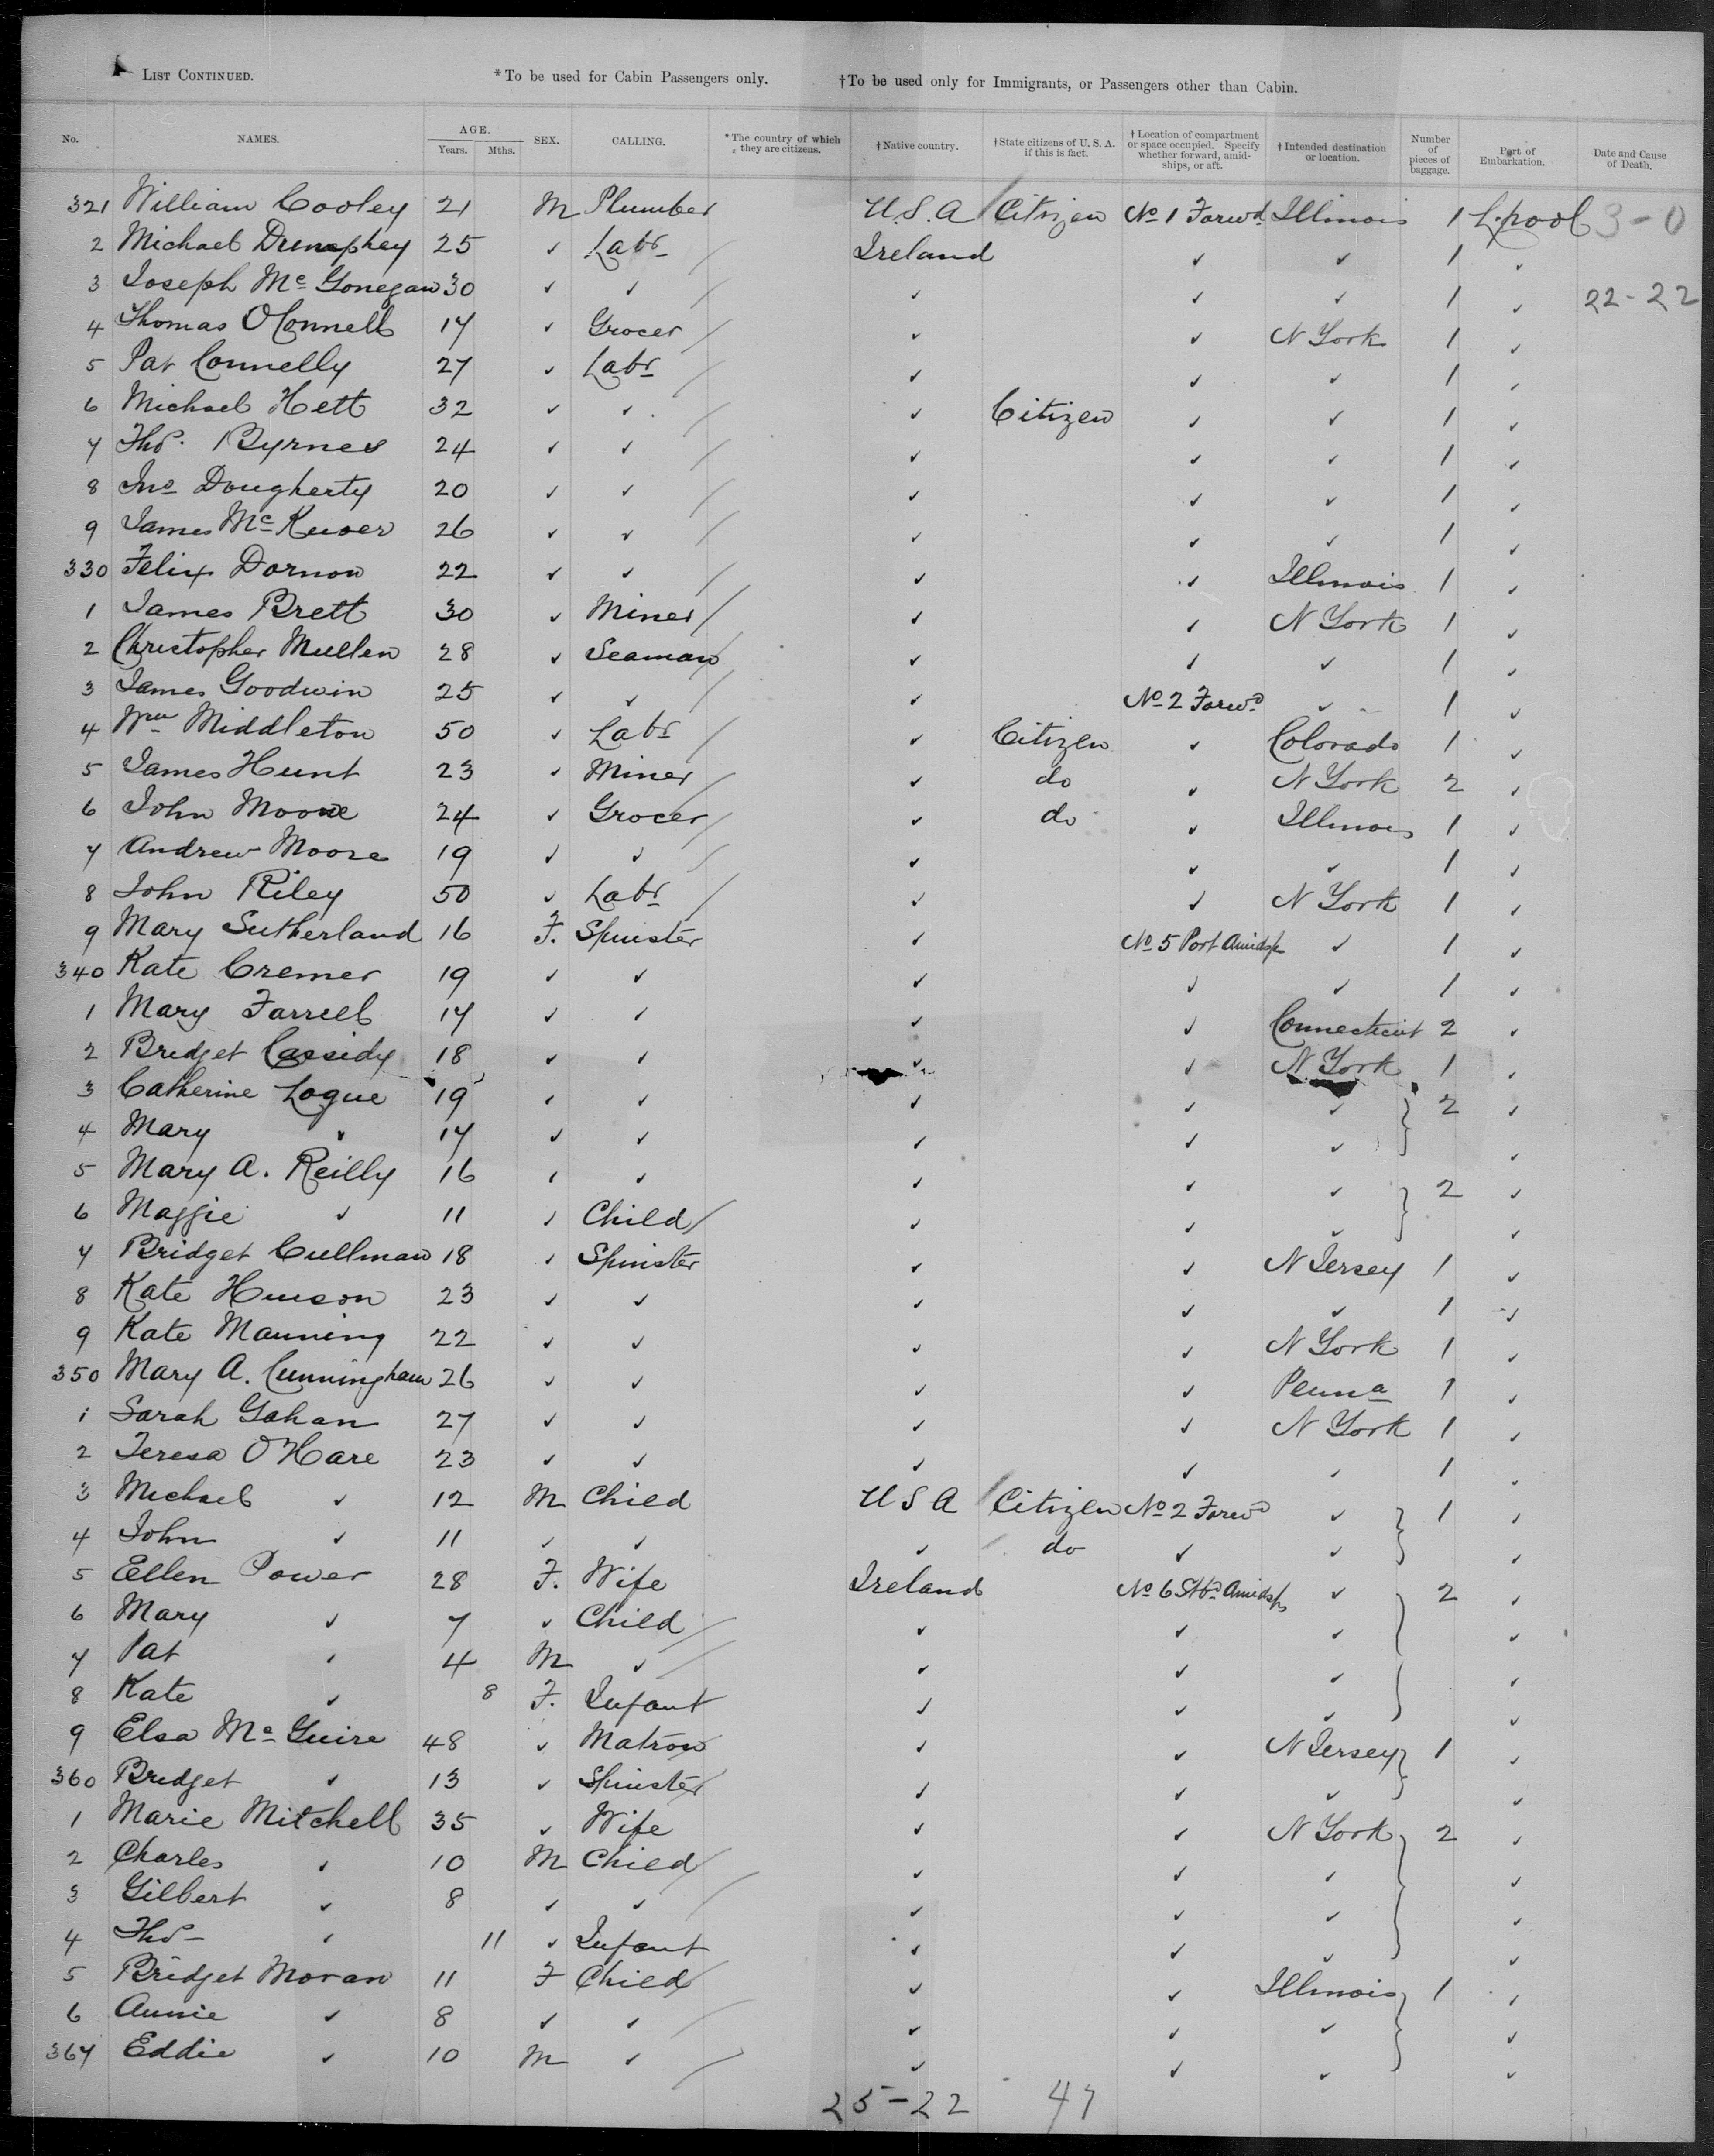 LIST CONTINUED. *To be used for Cabin Passengers only. †To be used only for Immigrants, or Passengers other than Cabin.
No. NAMES. AGE. Years. Mths. SEX. CALLING. *The country of which they are citizens. †Native country. †State citizens of U. S. A. if this is fact. †Location of compartment or space occupied. Specify whether forward, amidships, or aft. †Intended destination or location. Number of pieces of baggage. Port of Embarkation. Date and Cause of Death.
321 William Cooley 21 M Plumber U.S.A Citizen No 1 Forwd. Illinois 1 L.pool 3-0
2 Michael Dunphey 25 ✓ Labr Ireland ✓ ✓ 1 ✓
3 Joseph Mc Gonegan 30 ✓ ✓ ✓ ✓ ✓ 1 ✓ 22-22
4 Thomas OConnell 17 ✓ Grocer ✓ ✓ N York 1 ✓
5 Pat Connelly 27 ✓ Labr ✓ ✓ ✓ 1 ✓
6 Michael Hett 32 ✓ ✓ ✓ Citizen ✓ ✓ 1 ✓
7 Thos. Byrnes 24 ✓ ✓ ✓ ✓ ✓ 1 ✓
8 Jno Dougherty 20 ✓ ✓ ✓ ✓ ✓ 1 ✓
9 James Mc 26 ✓ ✓ ✓ ✓ ✓ 1 ✓
330 Felix Dornon 22 ✓ ✓ ✓ ✓ Illinois 1 ✓
1 James Brett 30 ✓ Miner ✓ ✓ N York 1 ✓
2 Christopher Mullen 28 ✓ Seaman ✓ ✓ ✓ 1 ✓
3 James Goodwin 25 ✓ ✓ ✓ No 2 Forwd ✓ 1 ✓
4 Wm Middleton 50 ✓ Labr ✓ Citizen ✓ Colorado 1 ✓
5 James Hunt 23 ✓ Miner ✓ do ✓ N York 2 ✓
6 John Moore 24 ✓ Grocer ✓ do ✓ Illinois 1 ✓
7 Andrew Moore 19 ✓ ✓ ✓ ✓ ✓ 1 ✓
8 John Riley 50 ✓ Labr ✓ ✓ N York 1 ✓
9 Mary Sutherland 16 F. Spinster ✓ No 5 Port Amidsp ✓ 1 ✓
340 Kate Cremer 19 ✓ ✓ ✓ ✓ ✓ 1 ✓
1 Mary Farrell 17 ✓ ✓ ✓ ✓ Connecticut 2 ✓
2 Bridget Cassidy 18 ✓ ✓ ✓ ✓ N York 1 ✓
3 Catherine Logue 19 ✓ ✓ ✓ ✓ ✓ } 2 ✓
4 Mary ✓ 17 ✓ ✓ ✓ ✓ ✓ ✓
5 Mary A. Reilly 16 ✓ ✓ ✓ ✓ ✓ } 2 ✓
6 Maggie ✓ 11 ✓ Child ✓ ✓ ✓ ✓
7 Bridget Cullman 18 ✓ Spinster ✓ ✓ N Jersey 1 ✓
8 Kate 23 ✓ ✓ ✓ ✓ ✓ 1 ✓
9 Kate Manning 22 ✓ ✓ ✓ ✓ N York 1 ✓
350 Mary A. Cunningham 26 ✓ ✓ ✓ ✓ Penna 1 ✓
1 Sarah Gahan 27 ✓ ✓ ✓ ✓ N York 1 ✓
2 Teresa O'Hare 23 ✓ ✓ ✓ ✓ ✓ 1 ✓
3 Michael ✓ 12 M Child U S A Citizen No 2 Forwd ✓ } 1 ✓
4 John ✓ 11 ✓ ✓ ✓ do ✓ ✓ ✓
5 Ellen Power 28 F. Wife Ireland No 6 Stbd Amidsps ✓ } 2 ✓
6 Mary ✓ 7 ✓ Child ✓ ✓ ✓ ✓
7 Pat ✓ 4 M ✓ ✓ ✓ ✓ ✓
8 Kate ✓ 8 F. Infant ✓ ✓ ✓ ✓
9 Elsa Mc Guire 48 ✓ Matron ✓ ✓ N Jersey } 1 ✓
360 Bridget ✓ 13 ✓ Spinster ✓ ✓ ✓ ✓
1 Marie Mitchell 35 ✓ Wife ✓ ✓ N York } 2 ✓
2 Charles ✓ 10 M Child ✓ ✓ ✓ ✓
3 Gilbert ✓ 8 ✓ ✓ ✓ ✓ ✓ ✓
4 Thos ✓ 11 ✓ Infant ✓ ✓ ✓ ✓
5 Bridget Moran 11 F Child ✓ ✓ Illinois } 1 ✓
6 Annie ✓ 8 ✓ ✓ ✓ ✓ ✓ ✓
367 Eddie ✓ 10 M ✓ ✓ ✓ ✓ ✓
25-22 47